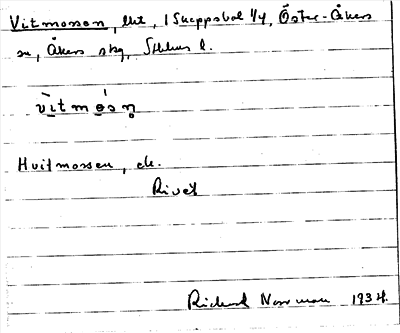 Vitmossen, lht, 1 Skeppsbol 1/4, Öster-Åkers
sn, Åkers skg, Sthlms l.
vìtmós̥n̥
Huitmossen, de.
Rivet
Richard Norrman 1934.